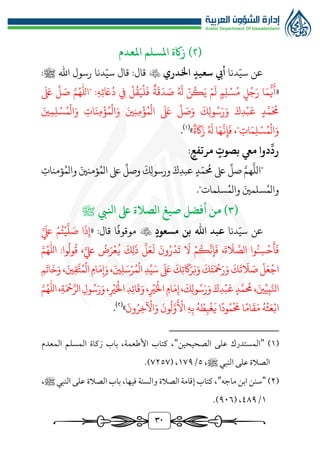 إدارة الشؤون العربية
Arabic Department Of Dawateislami
(٢) زكاة المسلم المعدم
عن سيّدنا أبي سعيدٍ الخدري ﵁ قال: قال سيّدنا رسول الله ﷺ:
«أَيُّمَا رَجُلٍ مُسْلِمٍ لَمْ يَكُنْ لَهُ صَدَقَةٌ فَلْيَقُلْ فِي دُعَائِهِ: "اللَّهُمَّ صَلِّ عَلَى
مُحَمَّدٍ عَبْدِكَ وَرَسُولِكَ وَصَلِّ عَلَى الْمُؤْمِنِينَ وَالْمُؤْمِنَاتِ وَالْمُسْلِمِينَ
وَالْمُسْلِمَاتِ"، فَإِنَّهَا لَهُ زَكَاةٌ»(١).
ردِّدوا معي بصوتٍ مرتفعٍ:
"اللَّهمَّ صلِّ على مُحمَّدٍ عبدِكَ ورسولِكَ وصلِّ على المُؤمنينَ والمُؤمناتِ
والمُسلمينَ والمُسلماتِ".
(٣) من أفضل صيغ الصلاة على النبي ﷺ
عن سيّدنا عبد الله بن مسعودٍ ﵁ موقوفًا قال: «إِذَا صَلَّيْتُمْ عَلَى النَّبِيِّ ﷺ
فَأَحْسِنُوا الصَّلَاةَ، فَإِنَّكُمْ لَا تَدْرُونَ لَعَلَّ ذَلِكَ يُعْرَضُ عَلَيْهِ، قُولُوا: اللَّهُمَّ
اجْعَلْ صَلَاتَكَ وَرَحْمَتَكَ وَبَرَكَاتِكَ عَلَى سَيِّدِ الْمُرْسَلِينَ، وَإِمَامِ الْمُتَّقِينَ، وَخَاتَمِ
النَّبِيِّينَ، مُحَمَّدٍ عَبْدِكَ وَرَسُولِكَ، إِمَامِ الْخَيْرِ، وَقَائِدِ الْخَيْرِ، وَرَسُولِ الرَّحْمَةِ، اللَّهُمَّ
ابْعَثْهُ مَقَامًا مَحْمُودًا يَغْبِطُهُ بِهِ الْأَوَّلُونَ وَالْآخِرُونَ»(٢).
(١) "المستدرك على الصحيحين"، كتاب الأطعمة، باب زكاة المسلم المعدم
الصلاة على النبي ﷺ، ٥/ ١٧٩، (٧٢٥٧).
(٢) "سنن ابن ماجه"، كتاب إقامة الصلاة والسنة فيها، باب الصلاة على النبي ﷺ،
١/ ٤٨٩، (٩٠٦).
٣٠